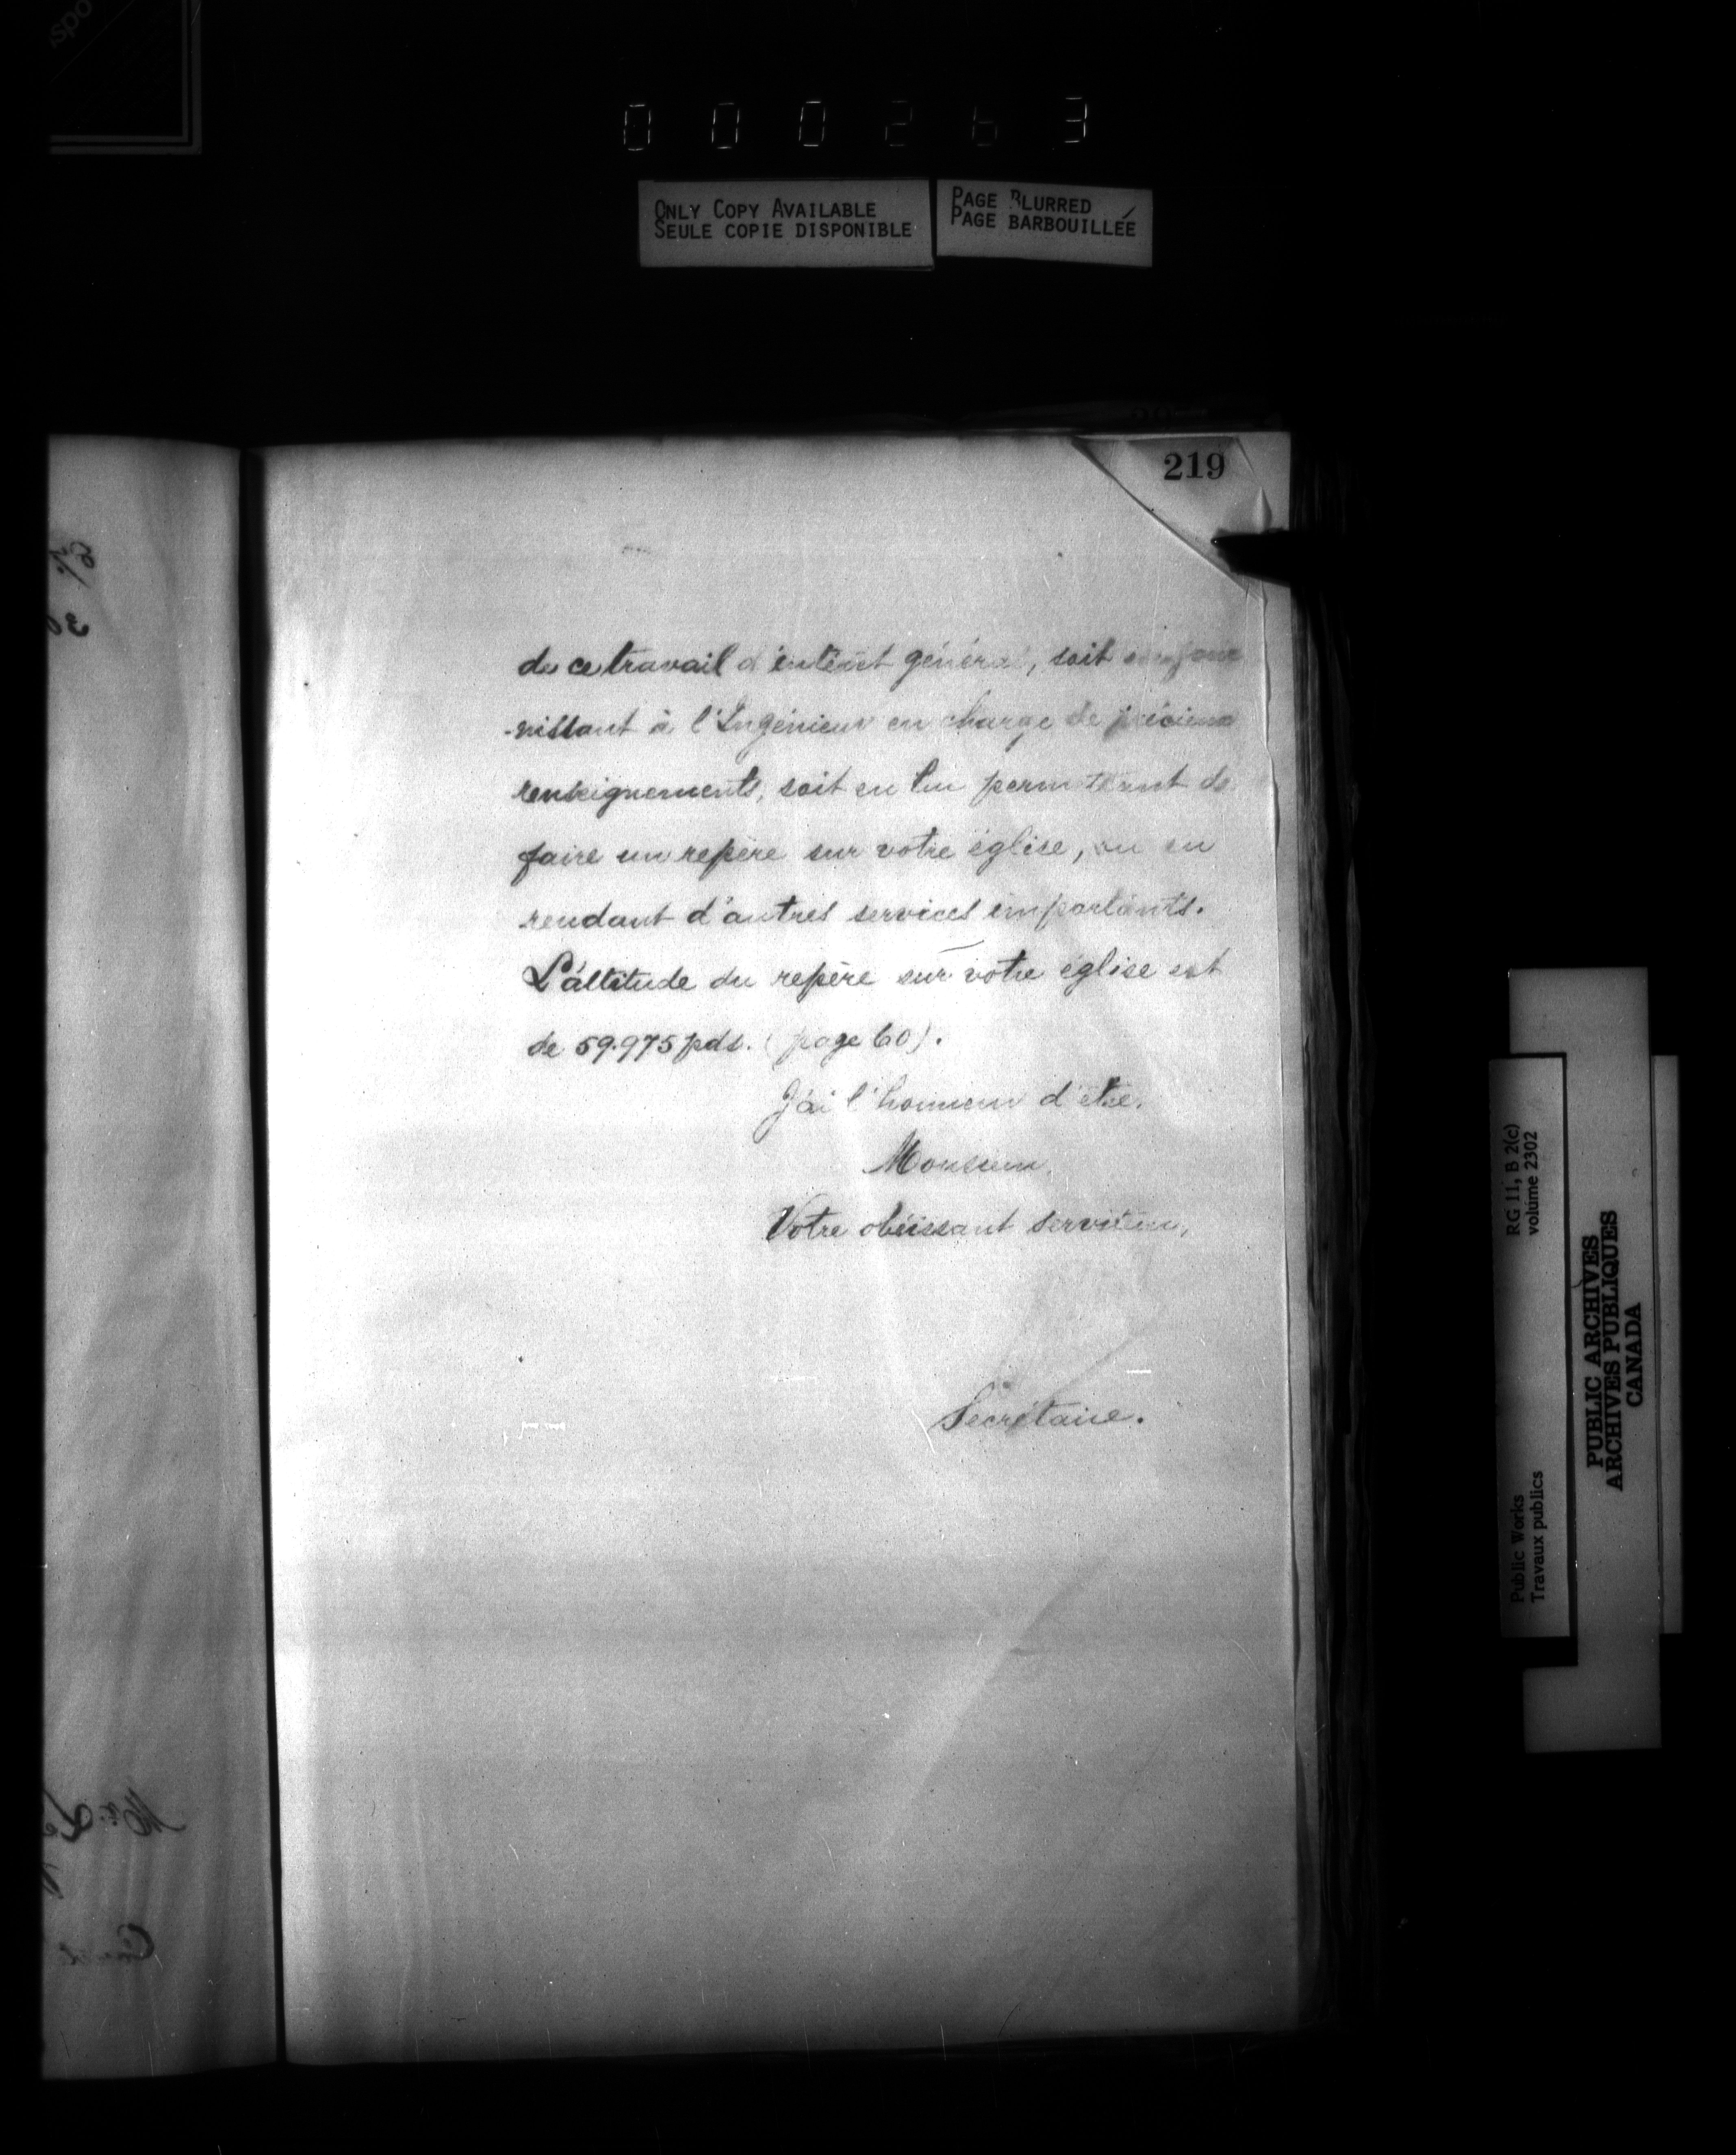 000263
ONLY COPY AVAILABLE
SEULE COPIE DISPONIBLE
PAGE BLURRED
PAGE BARBOUILLÉE
219
de ce travail d'intérêt général, soit en four
-nissant à l'Ingénieur en charge de précieux
renseignements, soit en lui permettant de
faire un repère sur votre église, ou en
rendant d'autres services importants.
L'altitude du repère sur votre église est
de 59.975 pds. (page 60).
J'ai l'honneur d'être,
Monsieur,
Votre obéissant serviteur,
Secrétaire.
RG 11, B 2(c)
volume 2302
Public Works
Travaux publics
PUBLIC ARCHIVES
ARCHIVES PUBLIQUES
CANADA